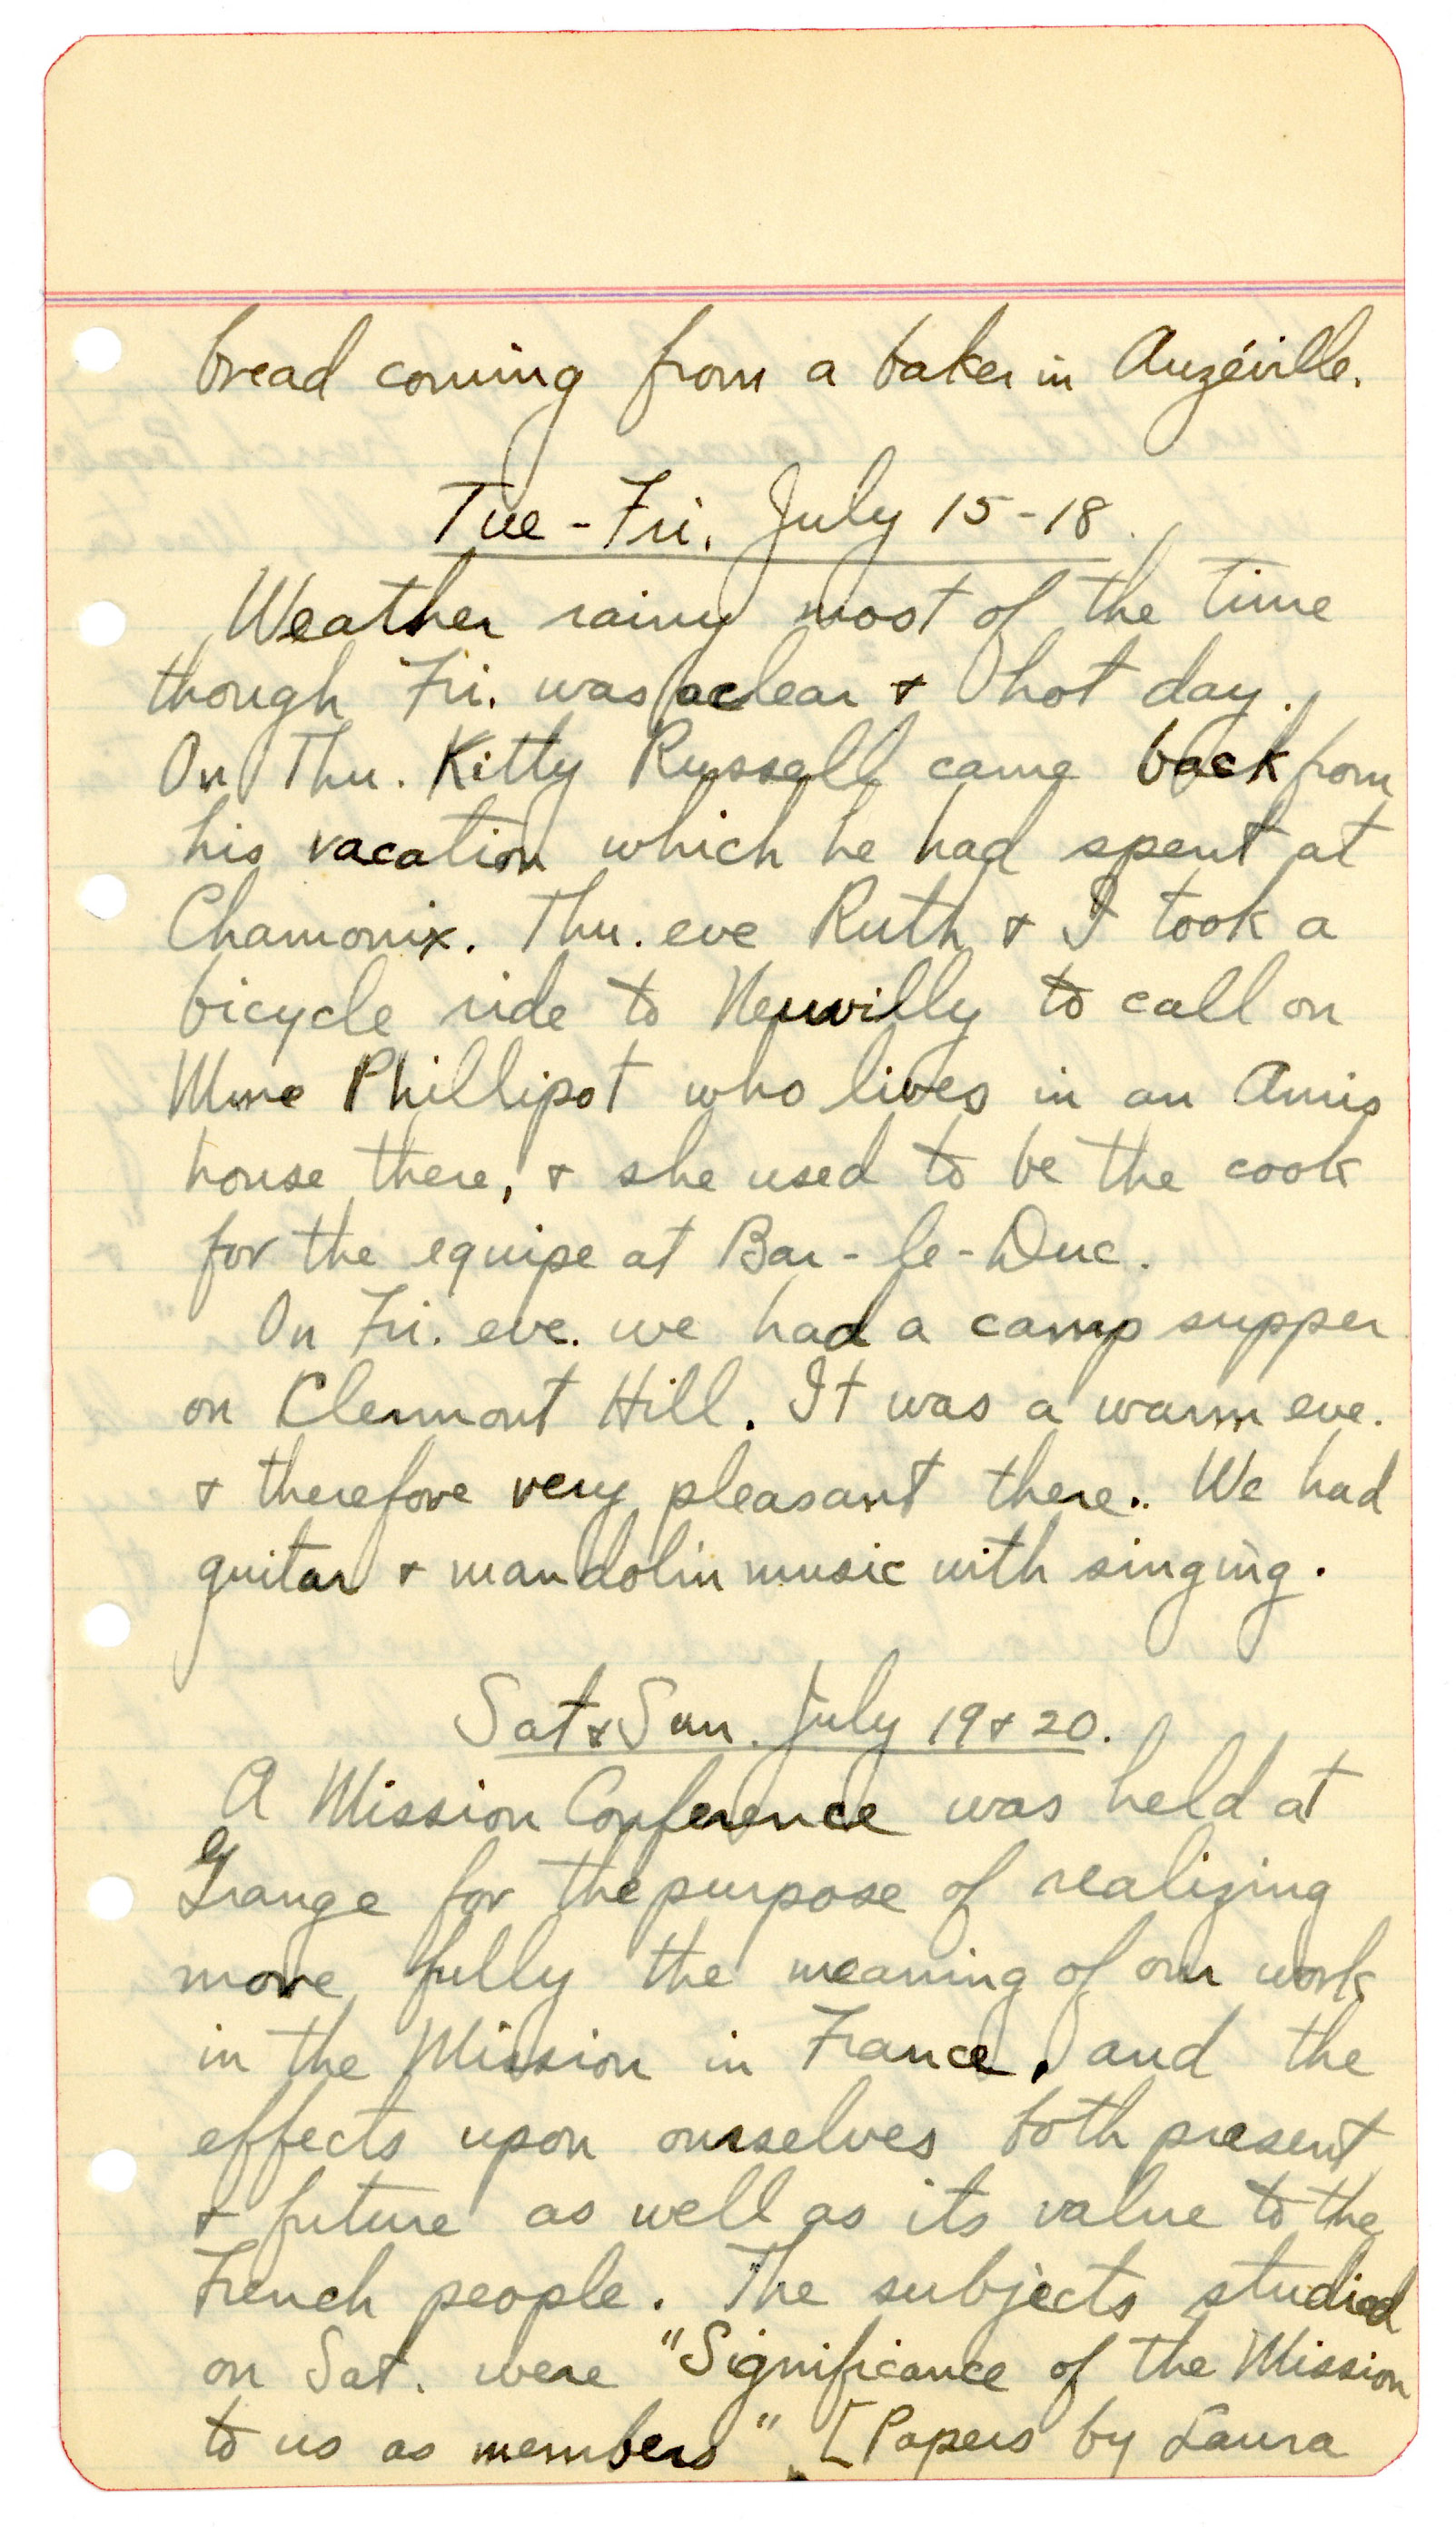 bread coming from a baker in Auzéville.
Tue - Fri. July 15-18.
Weather rainy most of the time
though Fri. was a clear & hot day.
On Thu. Kitty Russell came back from
his vacation which he had spent at
Chamonix. Thu. eve Ruth & I took a
bicycle ride to Neuvilly to call on
Mme Phillipot who lives in an Amis
house there, & she used to be the cook
for the equipe at Bar-le-Duc.
On Fri. eve. we had a camp supper
on Clermont Hill. It was a warm eve.
& therefore very pleasant there. We had
guitar & mandolin music with singing.
Sat & Sun. July 19 & 20.
A Mission Conference was held at
Grange for the purpose of realizing
more fully the meaning of our work
in the Mission in France, and the
effects upon ourselves both present
& future as well as its value to the
French people. The subjects studied
on Sat. were "Significance of the Mission
to us as members" [Papers by Laura